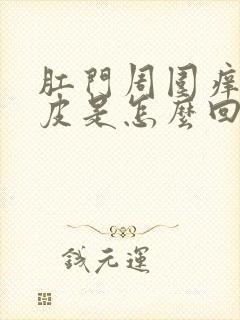 肛門周圍癢
皮是怎麼回
錢元運